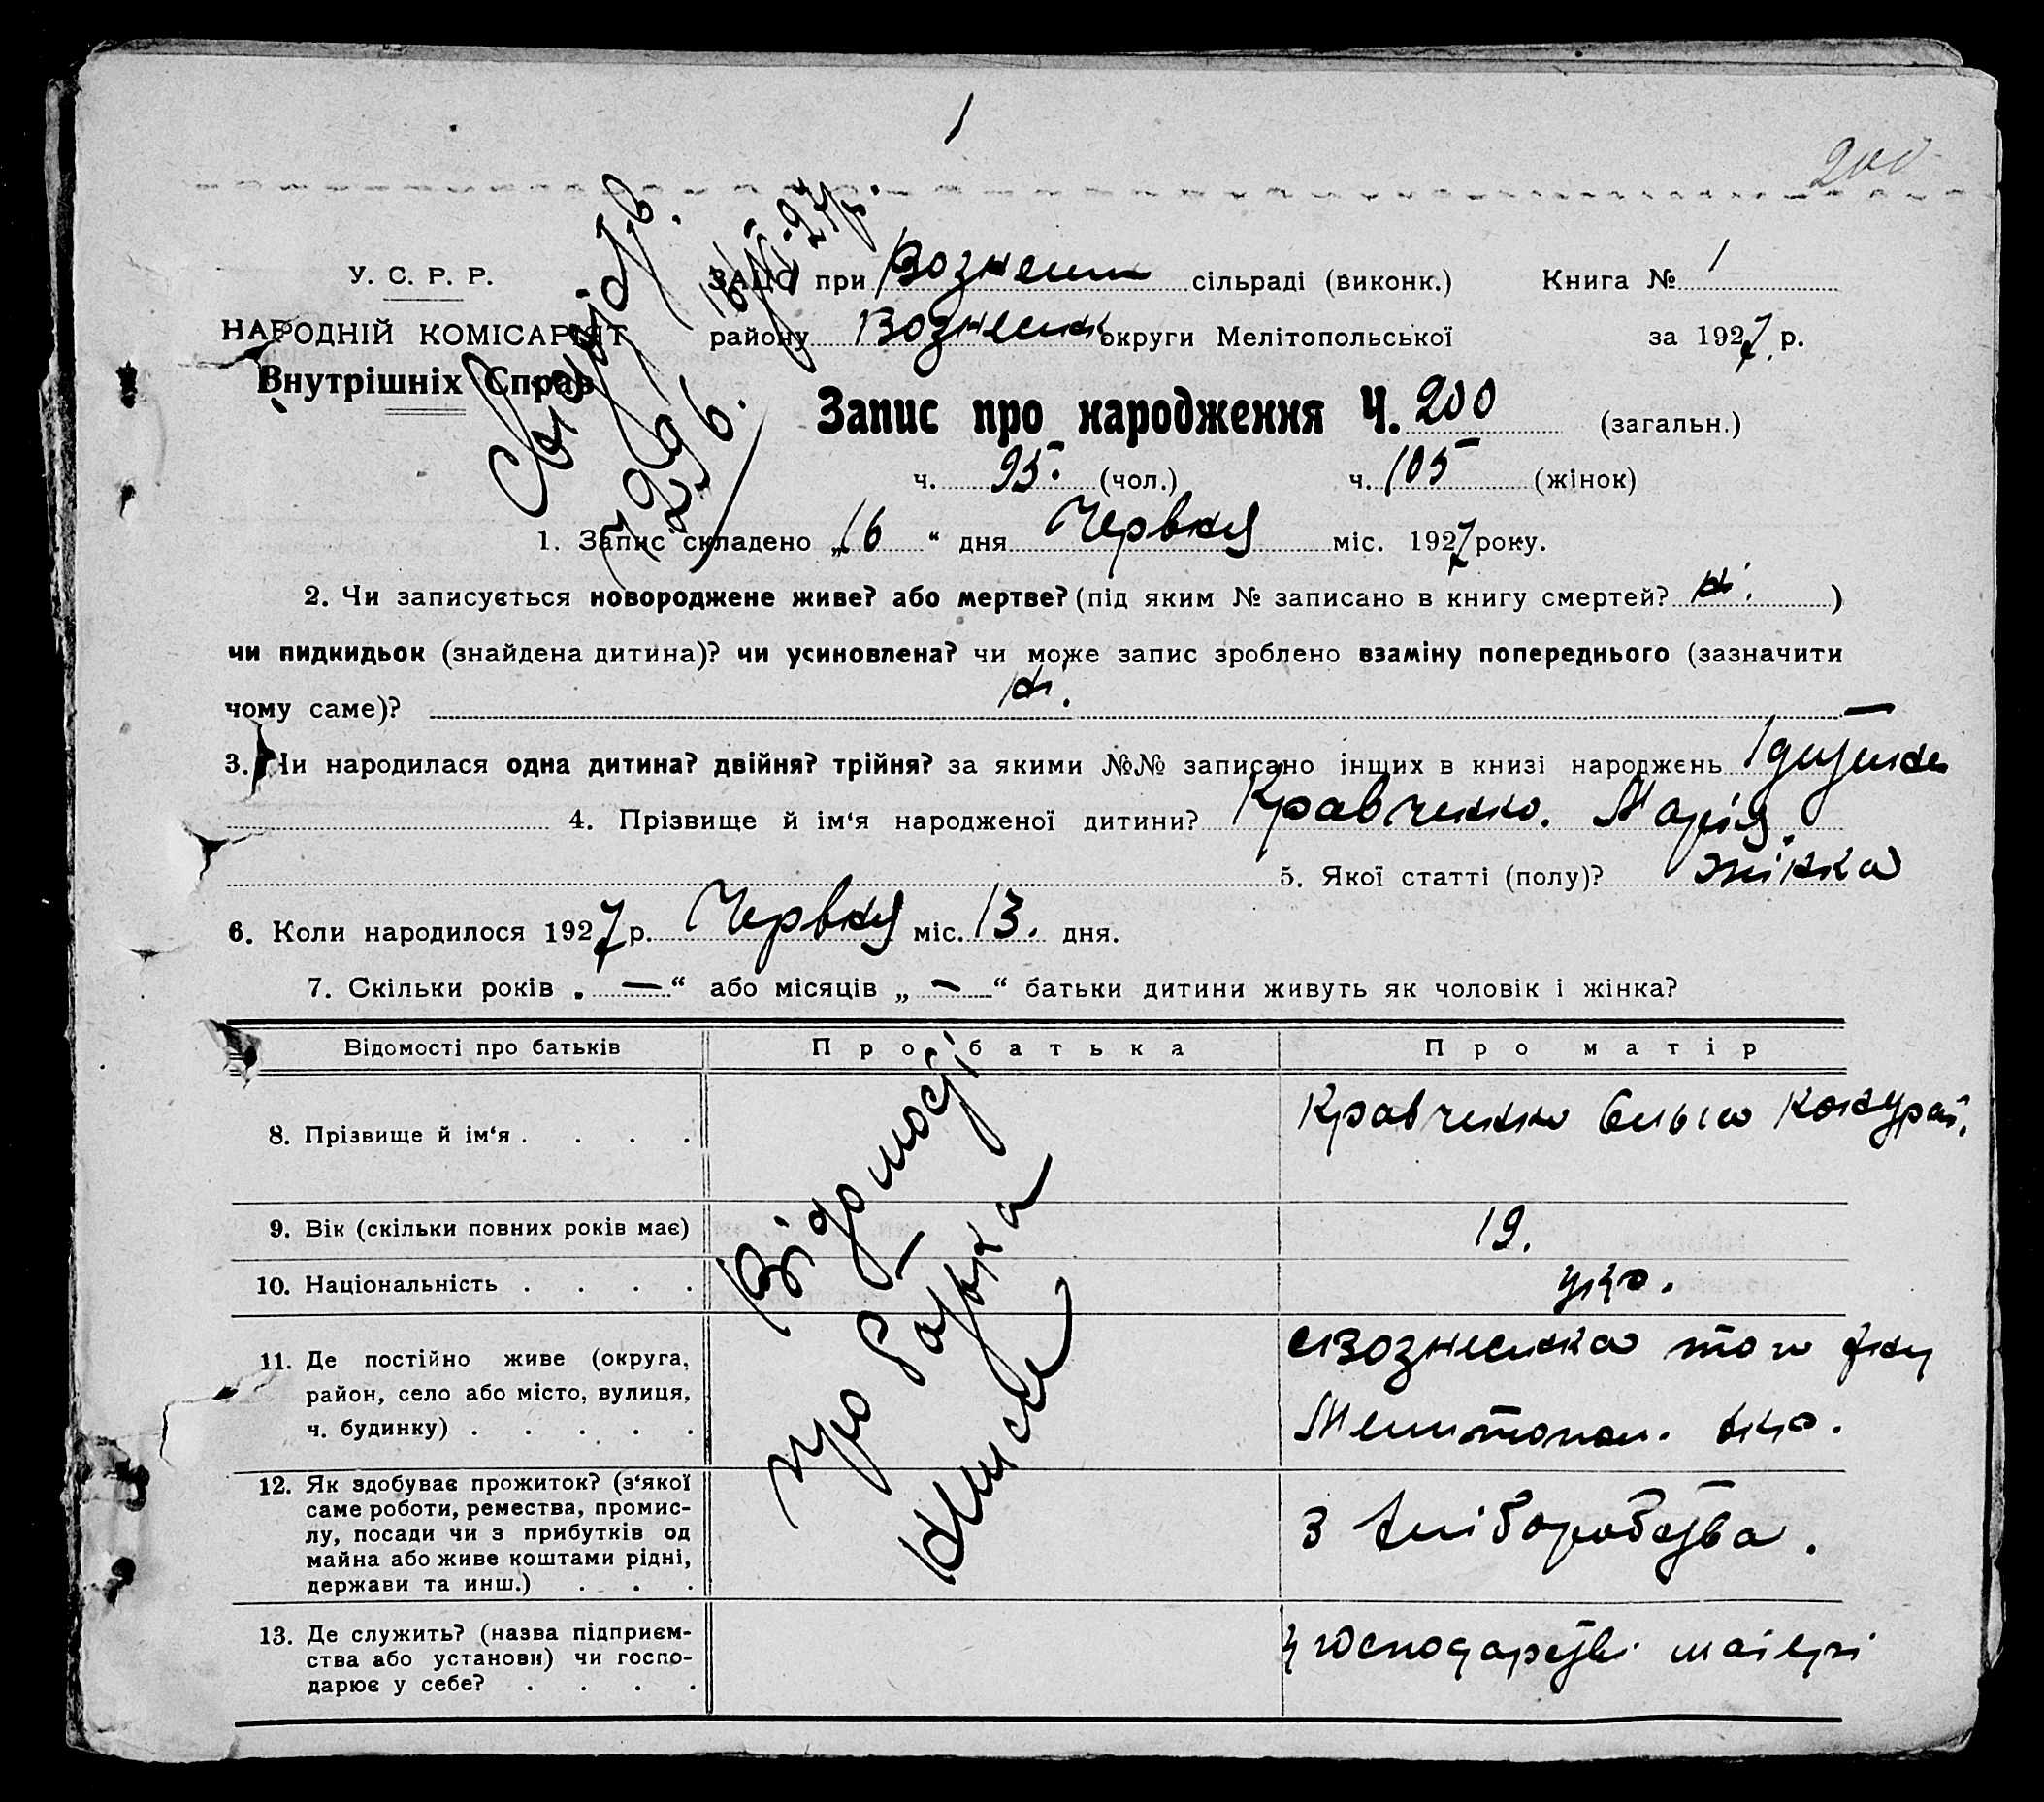 1
200
У. С. Р. Р.
НАРОДНІЙ КОМІСАРІЯТ
Внутрішніх Справ
ЗАЦС при Вознесен сільраді (виконк.) Книга № 1
району Вознесен округи Мелітопольської за 1927 р.
Запис про народження Ч. 200 (загальн.)
ч. 95. (чол.) ч. 105 (жінок)
1. Запис складено „16“ дня Червня міс. 1927 року.
2. Чи записується новороджене живе? або мертве? (під яким № записано в книгу смертей? )
чи пидкидьок (знайдена дитина)? чи усиновлена? чи може запис зроблено взаміну попереднього (зазначити
чому саме)?
3. Чи народилася одна дитина? двійня? трійня? за якими №№ записано інших в книзі народжень 1 дитина
4. Прізвище й ім‘я народженої дитини? Кравченко. Марія.
5. Якої статті (полу)? жінка
6. Коли народилося 1927 р. Червня міс. 13. дня.
7. Скільки років „ — “ або місяців „ — “ батьки дитини живуть як чоловік і жінка?
Відомості про батьків Про батька Про матір
8. Прізвище й ім‘я . . . . Кравченко
9. Вік (скільки повних років має) 19.
10. Національність . . . . укр.
11. Де постійно живе (округа,
район, село або місто, вулиця,
ч. будинку) . . . . .
Вознесенка того ж
Мелитопол. окр.
12. Як здобуває прожиток? (з‘якої
саме роботи, ремества, промис-
лу, посади чи з прибутків од
майна або живе коштами рідні,
держави та инш.) . . .
З хліборобства.
13. Де служить? (назва підприєм-
ства або установи) чи госпо-
дарює у себе? . . . .
у господарстві матері
Відомості
про батька
нема